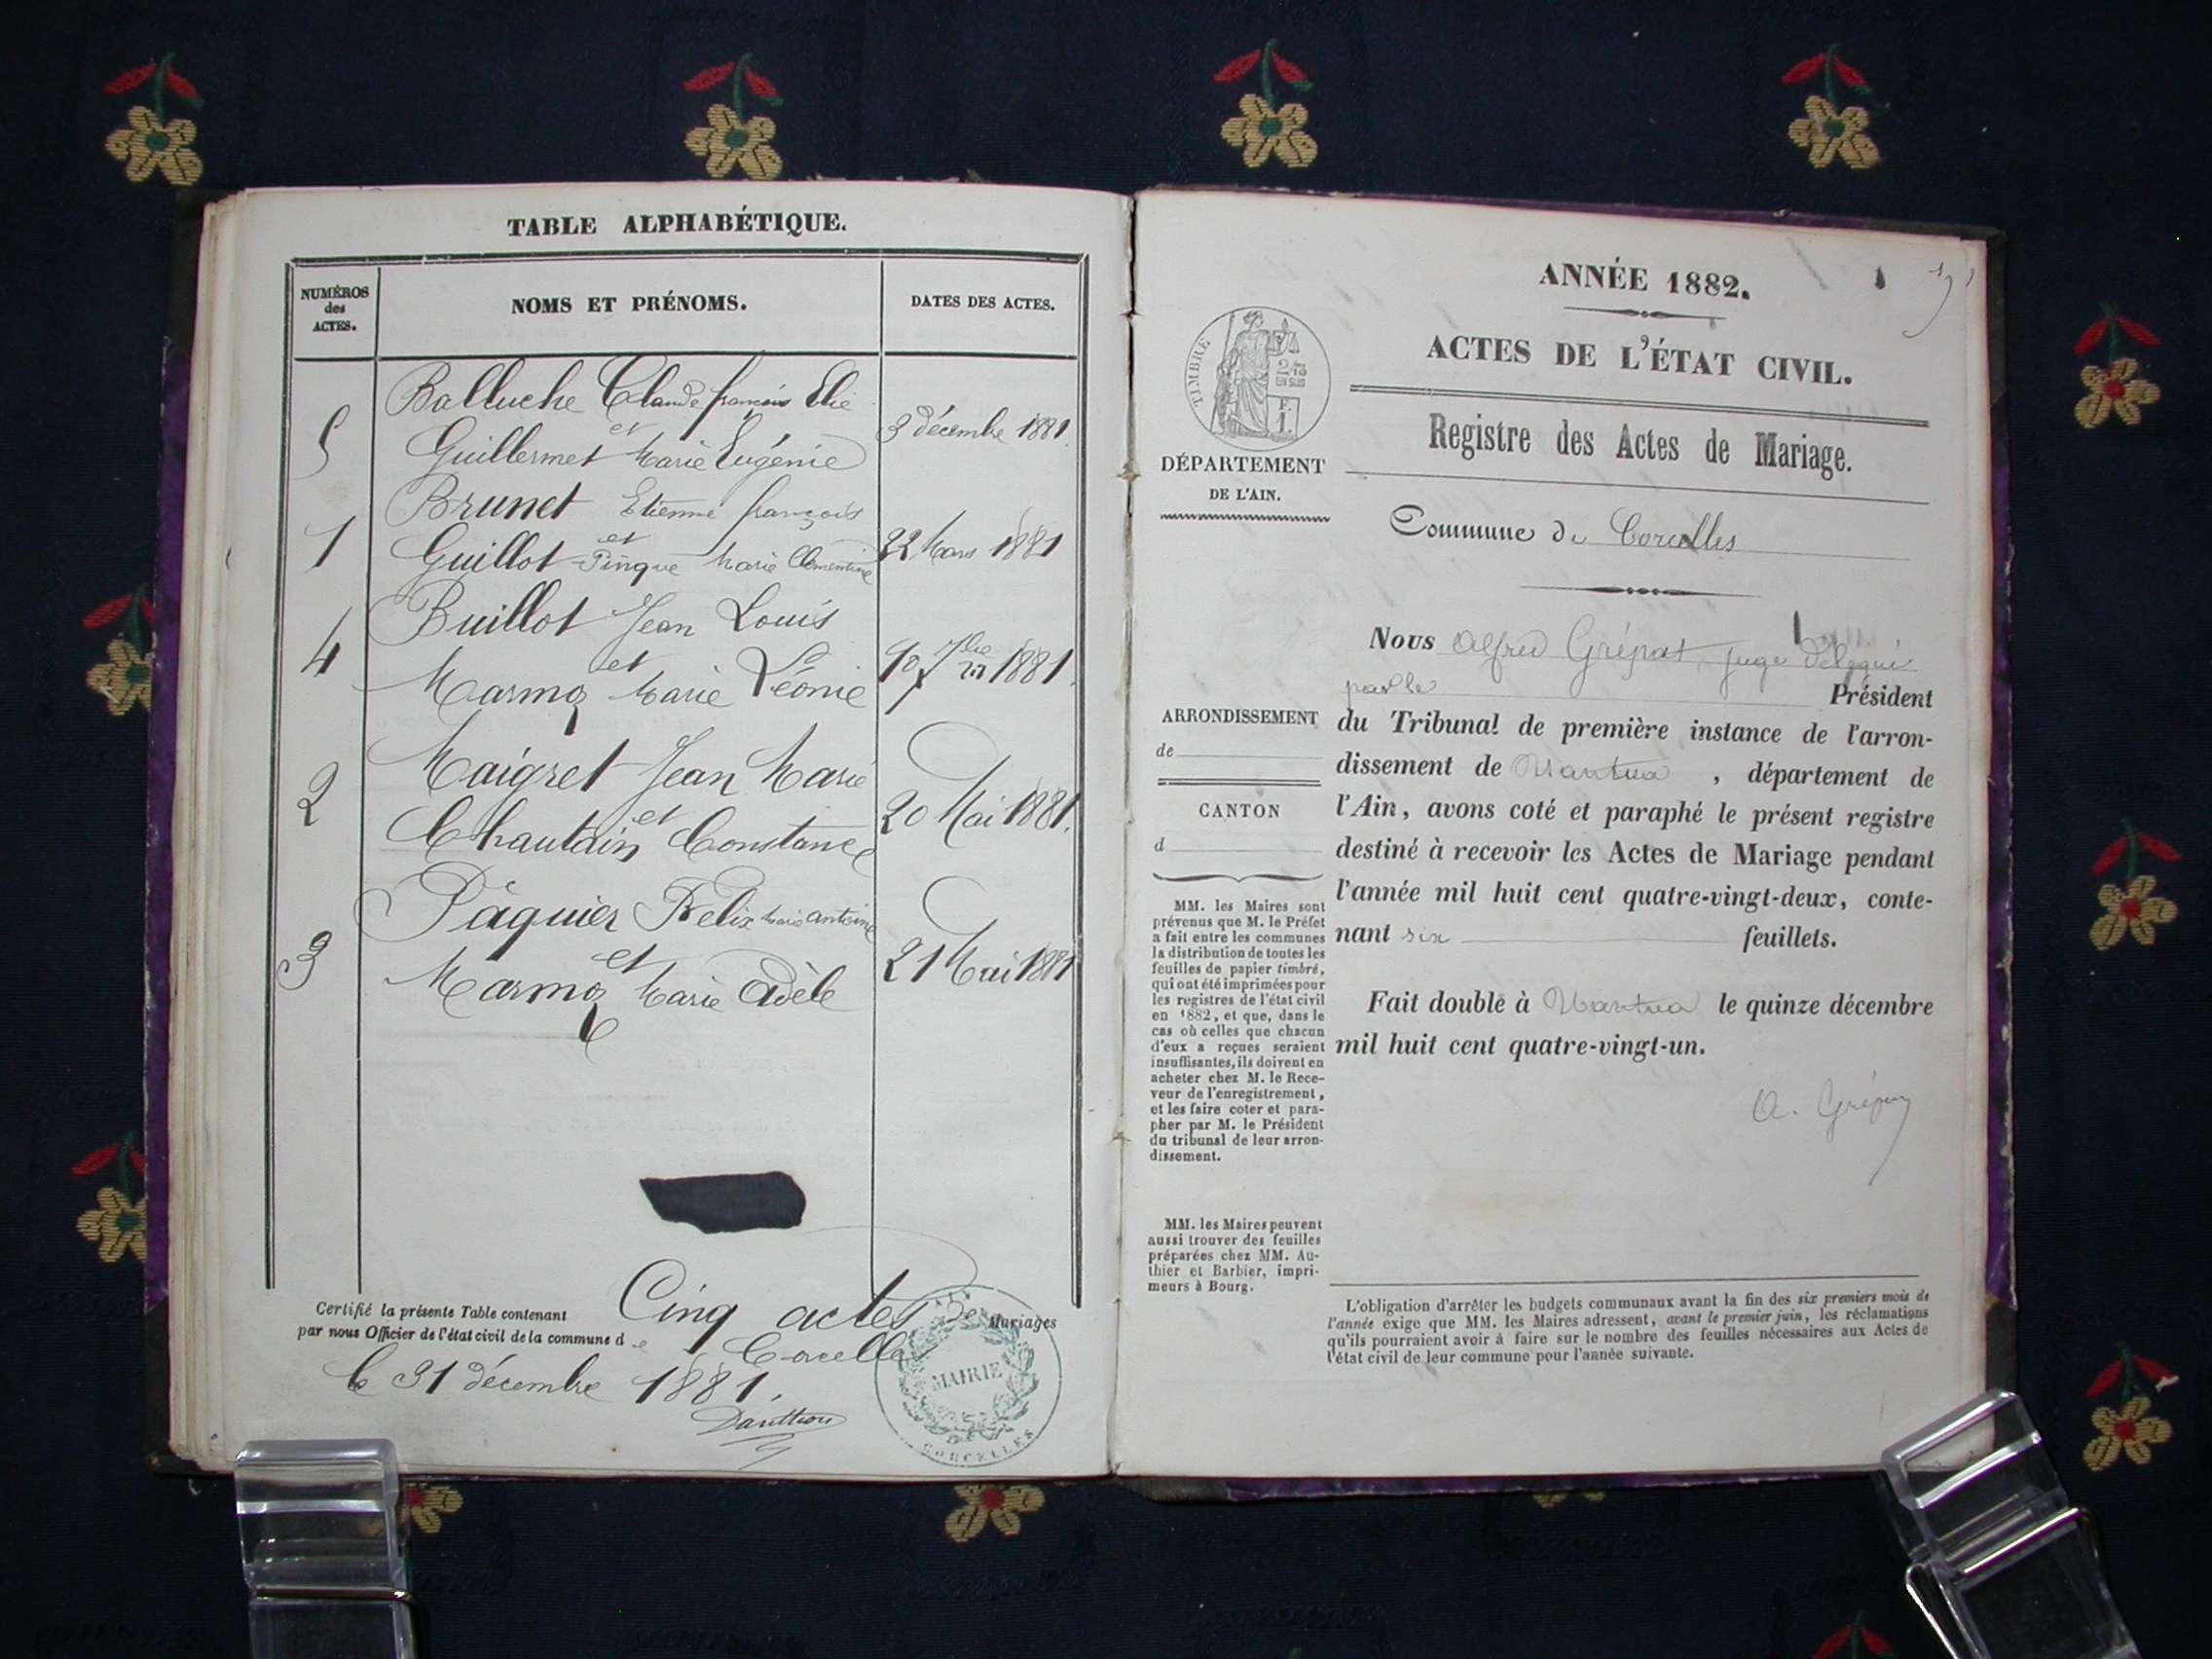 TABLE ALPHABÉTIQUE.
NUMÉROS
des
ACTES.
NOMS ET PRÉNOMS.
DATES DES ACTES.
Balluche Claude françois Elie
et
5
Guillermet Marie Eugénie
3 décembre 1881.
Brunet Etienne françois
et
1
Guillot-Pingue Marie Clementine
22 Mars 1881
Buillot Jean Louis
et
4
Marmoz Marie Léonie
10 7bre 1881.
Maigret Jean Marie
et
2
Chautain Constance
20 Mai 1881.
Pâquier Félix Marie Antoine
et
3
Marmoz Marie Adèle
21 Mai 1881
Certifié la présente Table contenant Cinq actes de Mariages
par nous Officier de l'état civil de la commune de Corcelles
le 31 décembre 1881.
MAIRIE
CORCELLES
ANNÉE 1882.
ACTES DE L'ÉTAT CIVIL.
TIMBRE
2/10
EN SUS
F.
1.
DÉPARTEMENT
DE L'AIN.
Registre des Actes de Mariage.
Commune de Corcelles
Nous Alfred Grépat, juge délégué
par le Président
du Tribunal de première instance de l'arron-
dissement de Nantua, département de
l'Ain, avons coté et paraphé le présent registre
destiné à recevoir les Actes de Mariage pendant
l'année mil huit cent quatre-vingt-deux, conte-
nant six feuillets.
Fait double à Nantua le quinze décembre
mil huit cent quatre-vingt-un.
ARRONDISSEMENT
de
CANTON
d
MM. les Maires sont
prévenus que M. le Préfet
a fait entre les communes
la distribution de toutes les
feuilles de papier timbré,
qui ont été imprimées pour
les registres de l'état civil
en 1882, et que, dans le
cas où celles que chacun
d'eux a reçues seraient
insuffisantes, ils doivent en
acheter chez M. le Rece-
veur de l'enregistrement,
et les faire coter et para-
pher par M. le Président
du tribunal de leur arron-
dissement.
MM. les Maires peuvent
aussi trouver des feuilles
préparées chez MM. Au-
thier et Barbier, impri-
meurs à Bourg.
L'obligation d'arrêter les budgets communaux avant la fin des six premiers mois de
l'année exige que MM. les Maires adressent, avant le premier juin, les réclamations
qu'ils pourraient avoir à faire sur le nombre des feuilles nécessaires aux Actes de
l'état civil de leur commune pour l'année suivante.